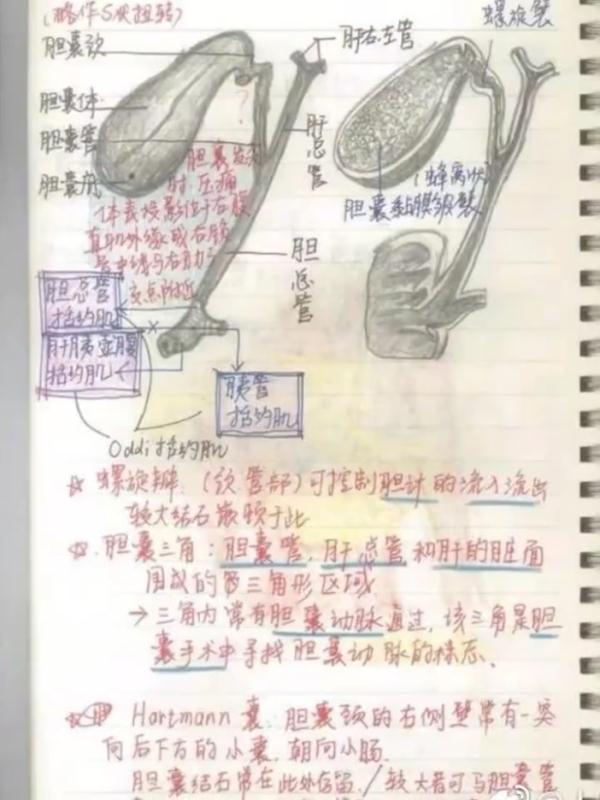 (略作S状扭转)
螺旋襞
胆囊颈
肝右.左管
胆囊体
胆囊管
胆囊底
肝总管
胆囊发炎
时,压痛
体表投影位于右腹
直肌外缘或右锁
骨中线与右肋弓
交点附近
(蜂窝状)
胆囊黏膜皱襞
胆总管
胆总管
括约肌
肝胰壶腹
括约肌
胰管
括约肌
Oddi括约肌
☆ 螺旋瓣:(颈管部)可控制胆汁的流入流出
较大结石嵌顿于此
☆.胆囊三角:胆囊管,肝总管和肝的脏面
围成的三角形区域
→三角内常有胆囊动脉通过,该三角是胆
囊手术中寻找胆囊动脉的标志.
Hartmann囊:胆囊颈的右侧壁常有一突
向后下方的小囊,朝向小肠.
胆囊结石常在此处存留./较大者可与胆囊管